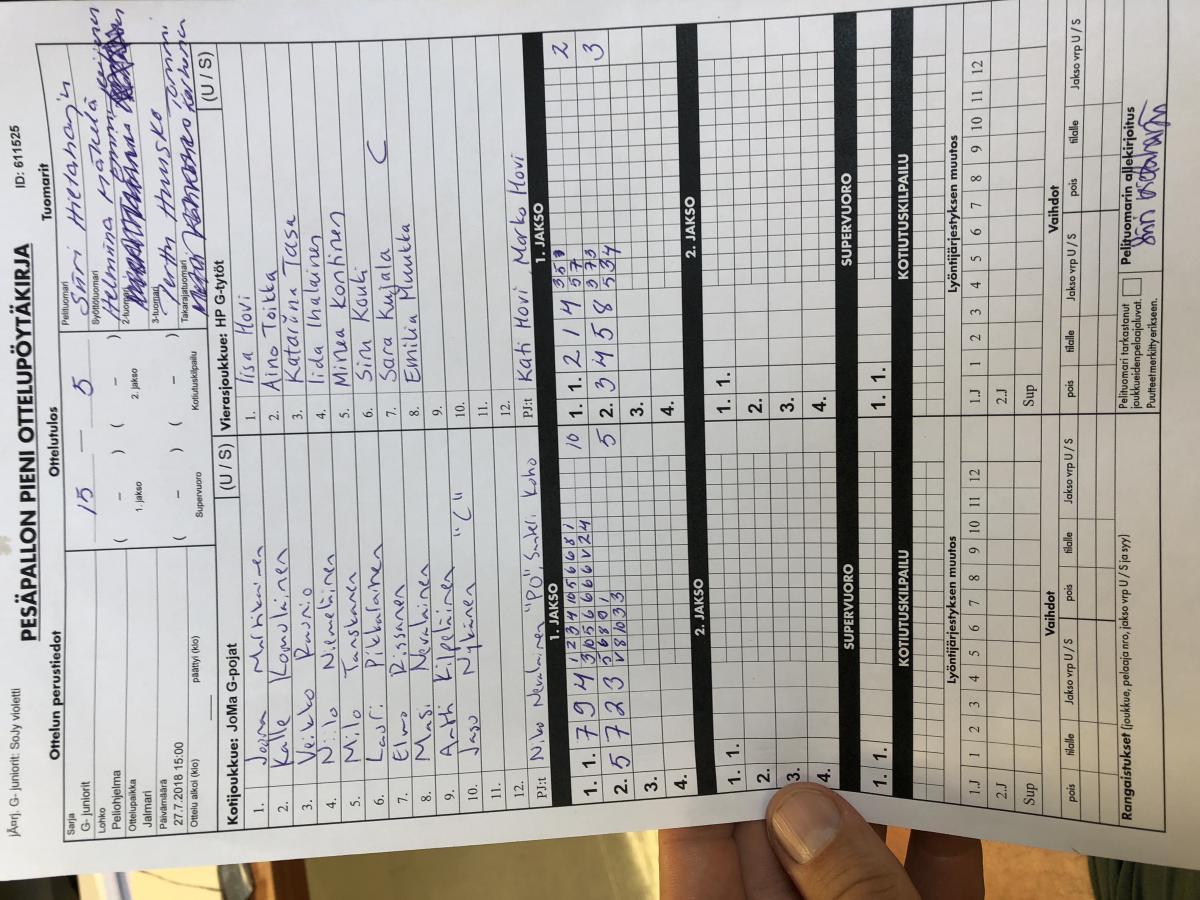 jÄrj. G- juniorit: SoJy violetti
PESÄPALLON PIENI OTTELUPÖYTÄKIRJA ID: 611525
Ottelun perustiedot
Sarja
G- juniorit
Lohko
Peliohjelma
Ottelupaikka
Jalmari
Päivämäärä
27.7.2018 15:00
Ottelu alkoi (klo) päättyi (klo)
Ottelutulos
15 – 5
( – ) ( – )
1. jakso 2. jakso
( – ) ( – )
Supervuoro Kotiutuskilpailu
Tuomarit
Pelituomari
Siiri Hietaharju
Syöttötuomari
Helmiina Mäkelä
2-tuomari
3-tuomari
Perttu Huusko
Takarajatuomari
Kotijoukkue: JoMa G-pojat (U / S)
1. Joona Martikainen
2. Kalle Komulainen
3. Veikko Raunio
4. Niilo Niemeläinen
5. Milo Tanskanen
6. Lauri Pikkarainen
7. Elmo Rissanen
8. Masi Nevalainen
9. Antti Kilpeläinen "C"
10. Jasu Nykänen
11.
12.
PJ:t Niko Nevalainen "PO", Santeri Koho
Vierasjoukkue: HP G-tytöt (U / S)
1. Iisa Hovi
2. Aino Toikka
3. Katariina Tasa
4. Iida Ihalainen
5. Minea Kontinen
6. Siiri Kouki
7. Sara Kujala C
8. Emilia Muukka
9.
10.
11.
12.
PJ:t Kati Hovi, Marko Hovi
1. JAKSO 1. JAKSO
1. 1. 7 9 4 10
2. 5 7 2 3 5
3.
4.
1. 1. 2 1 4 2
2. 3 4 5 8 3
3.
4.
2. JAKSO 2. JAKSO
1. 1. 1. 1.
2. 2.
3. 3.
4. 4.
SUPERVUORO SUPERVUORO
1. 1. 1. 1.
KOTIUTUSKILPAILU KOTIUTUSKILPAILU
Lyöntijärjestyksen muutos Lyöntijärjestyksen muutos
1.J 1 2 3 4 5 6 7 8 9 10 11 12 1.J 1 2 3 4 5 6 7 8 9 10 11 12
2.J 2.J
Sup Sup
Vaihdot Vaihdot
pois tilalle Jakso vrp U / S pois tilalle Jakso vrp U / S pois tilalle Jakso vrp U / S pois tilalle Jakso vrp U / S
Rangaistukset (joukkue, pelaaja nro, jakso vrp U / S ja syy)
Pelituomari tarkastanut
joukkueiden pelaajaluvat.
Puutteet merkitty erikseen.
Pelituomarin allekirjoitus
Siiri Hietaharju